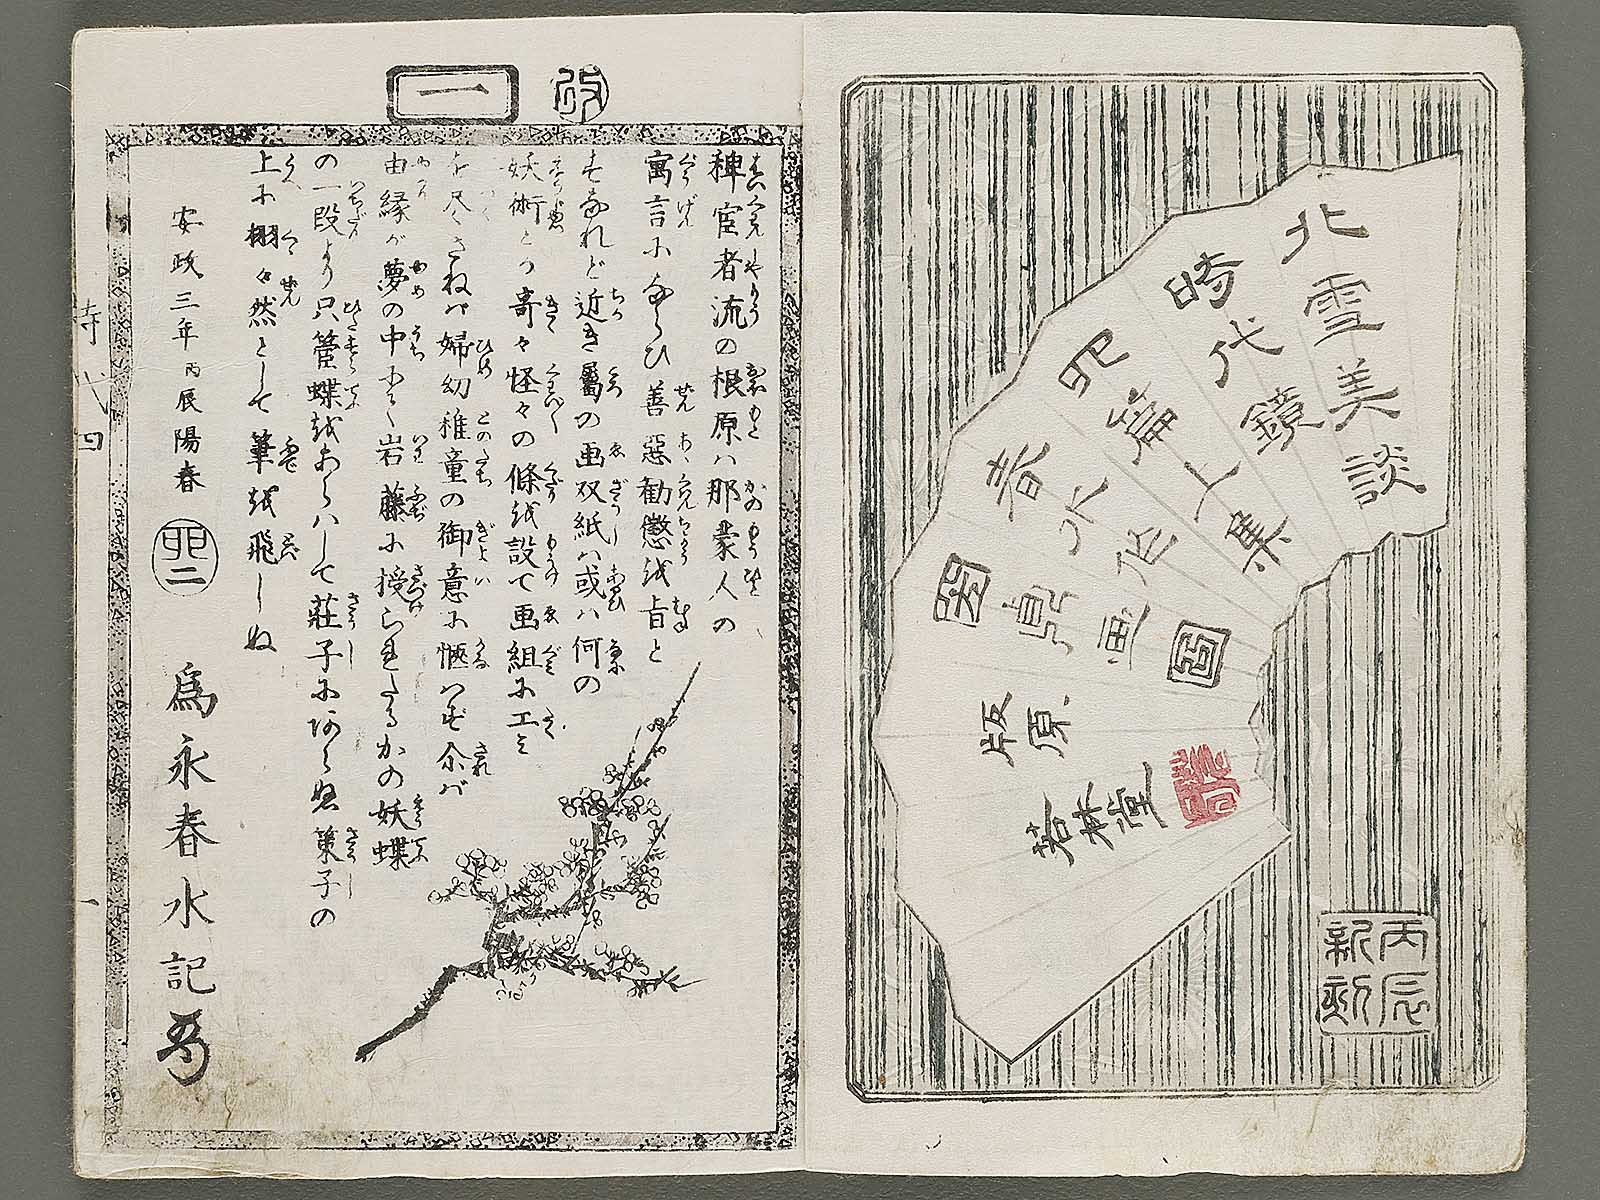 北雪美談
時代鏡
四篇上集
春水作
國貞画
原版
若林堂
丙辰
新刻
改
一
稗官者流の根原ハ那蒙人の
寓言にならひ善惡勧懲を旨と
すなれど近き属の画双紙ハ或ハ何の
妖術とか奇々怪々の條を設て画組に工ミ
を尽くさねバ婦幼稚童の御意に愜はず尓ば
由縁が夢の中にて岩藤に授られたるかの妖蝶
の一段より只管蝶をあらハして荘子にあらぬ策子の
上に栩々然として筆を飛しぬ
安政三年丙辰陽春
為永春水記
時代四
一